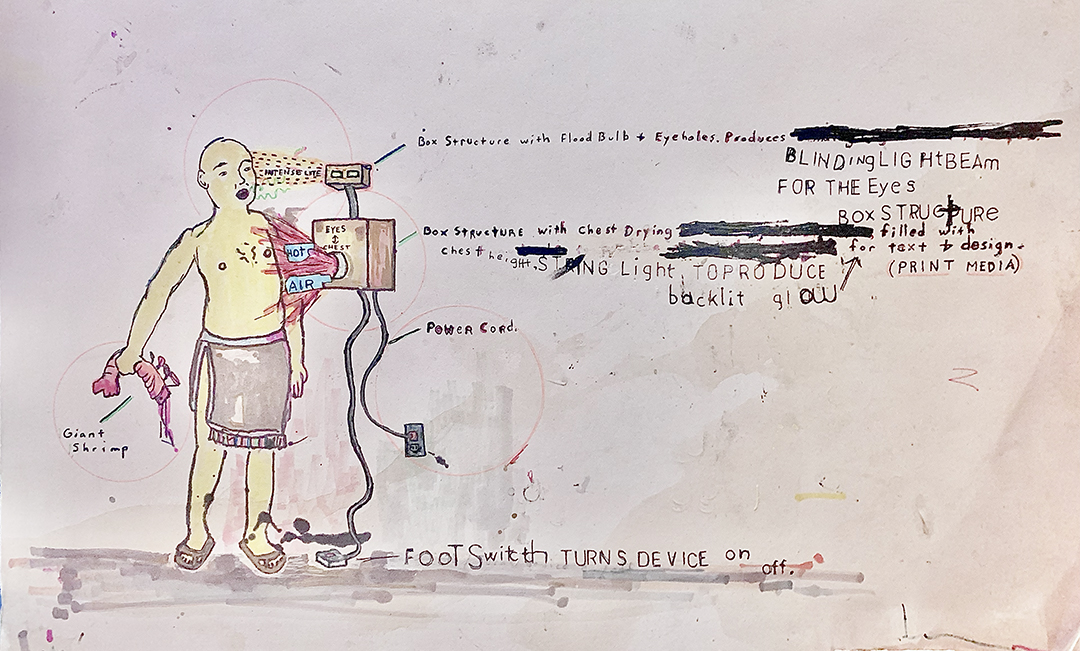 Box Structure with Flood Bulb + Eyeholes. Produces
BLINDING LIGHt BEAm
FOR THE Eyes
INTENSE LITE
BOX STRUCtURe
BOX STRUCTURE with Chest Drying filled with
chest height, for text + design.
STRING Light, TO PRODUCE (PRINT MEDIA)
backlit glOW
EYES
CHEST
HOT
AIR
POWER CORD.
Giant
Shrimp
FOOT Switch TURNS DEVICE on
off.